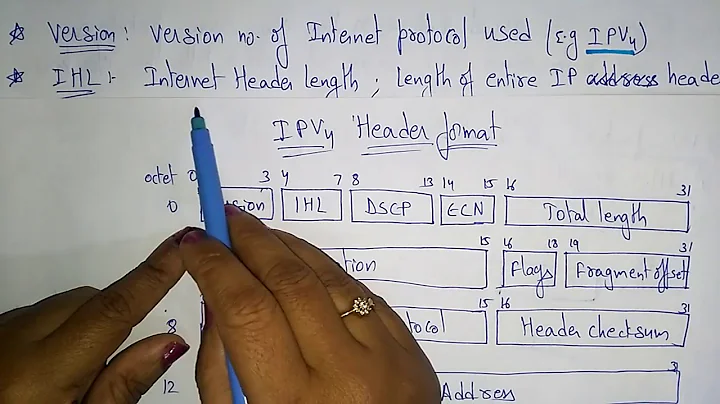 ☆ Version: Version no. of Internet protocol used (E.g IPV4)
☆ IHL:- Internet Header length; length of entire IP heade
IPV4 Header format
octet 0 3 4 7 8 13 14 15 16 31
0 sion IHL DSCP ECN Total length
15 16 18 19 31
tion Flags Fragment offset
15 16 31
8 tocol Header checksum
31
12 Address